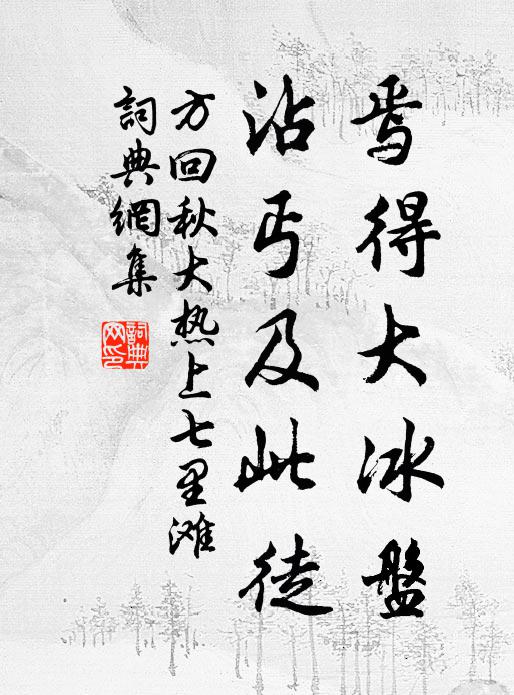 焉得大冰盤
沾丐及此徒
方回秋大热上七里滩
詞典網集
詞典
网印